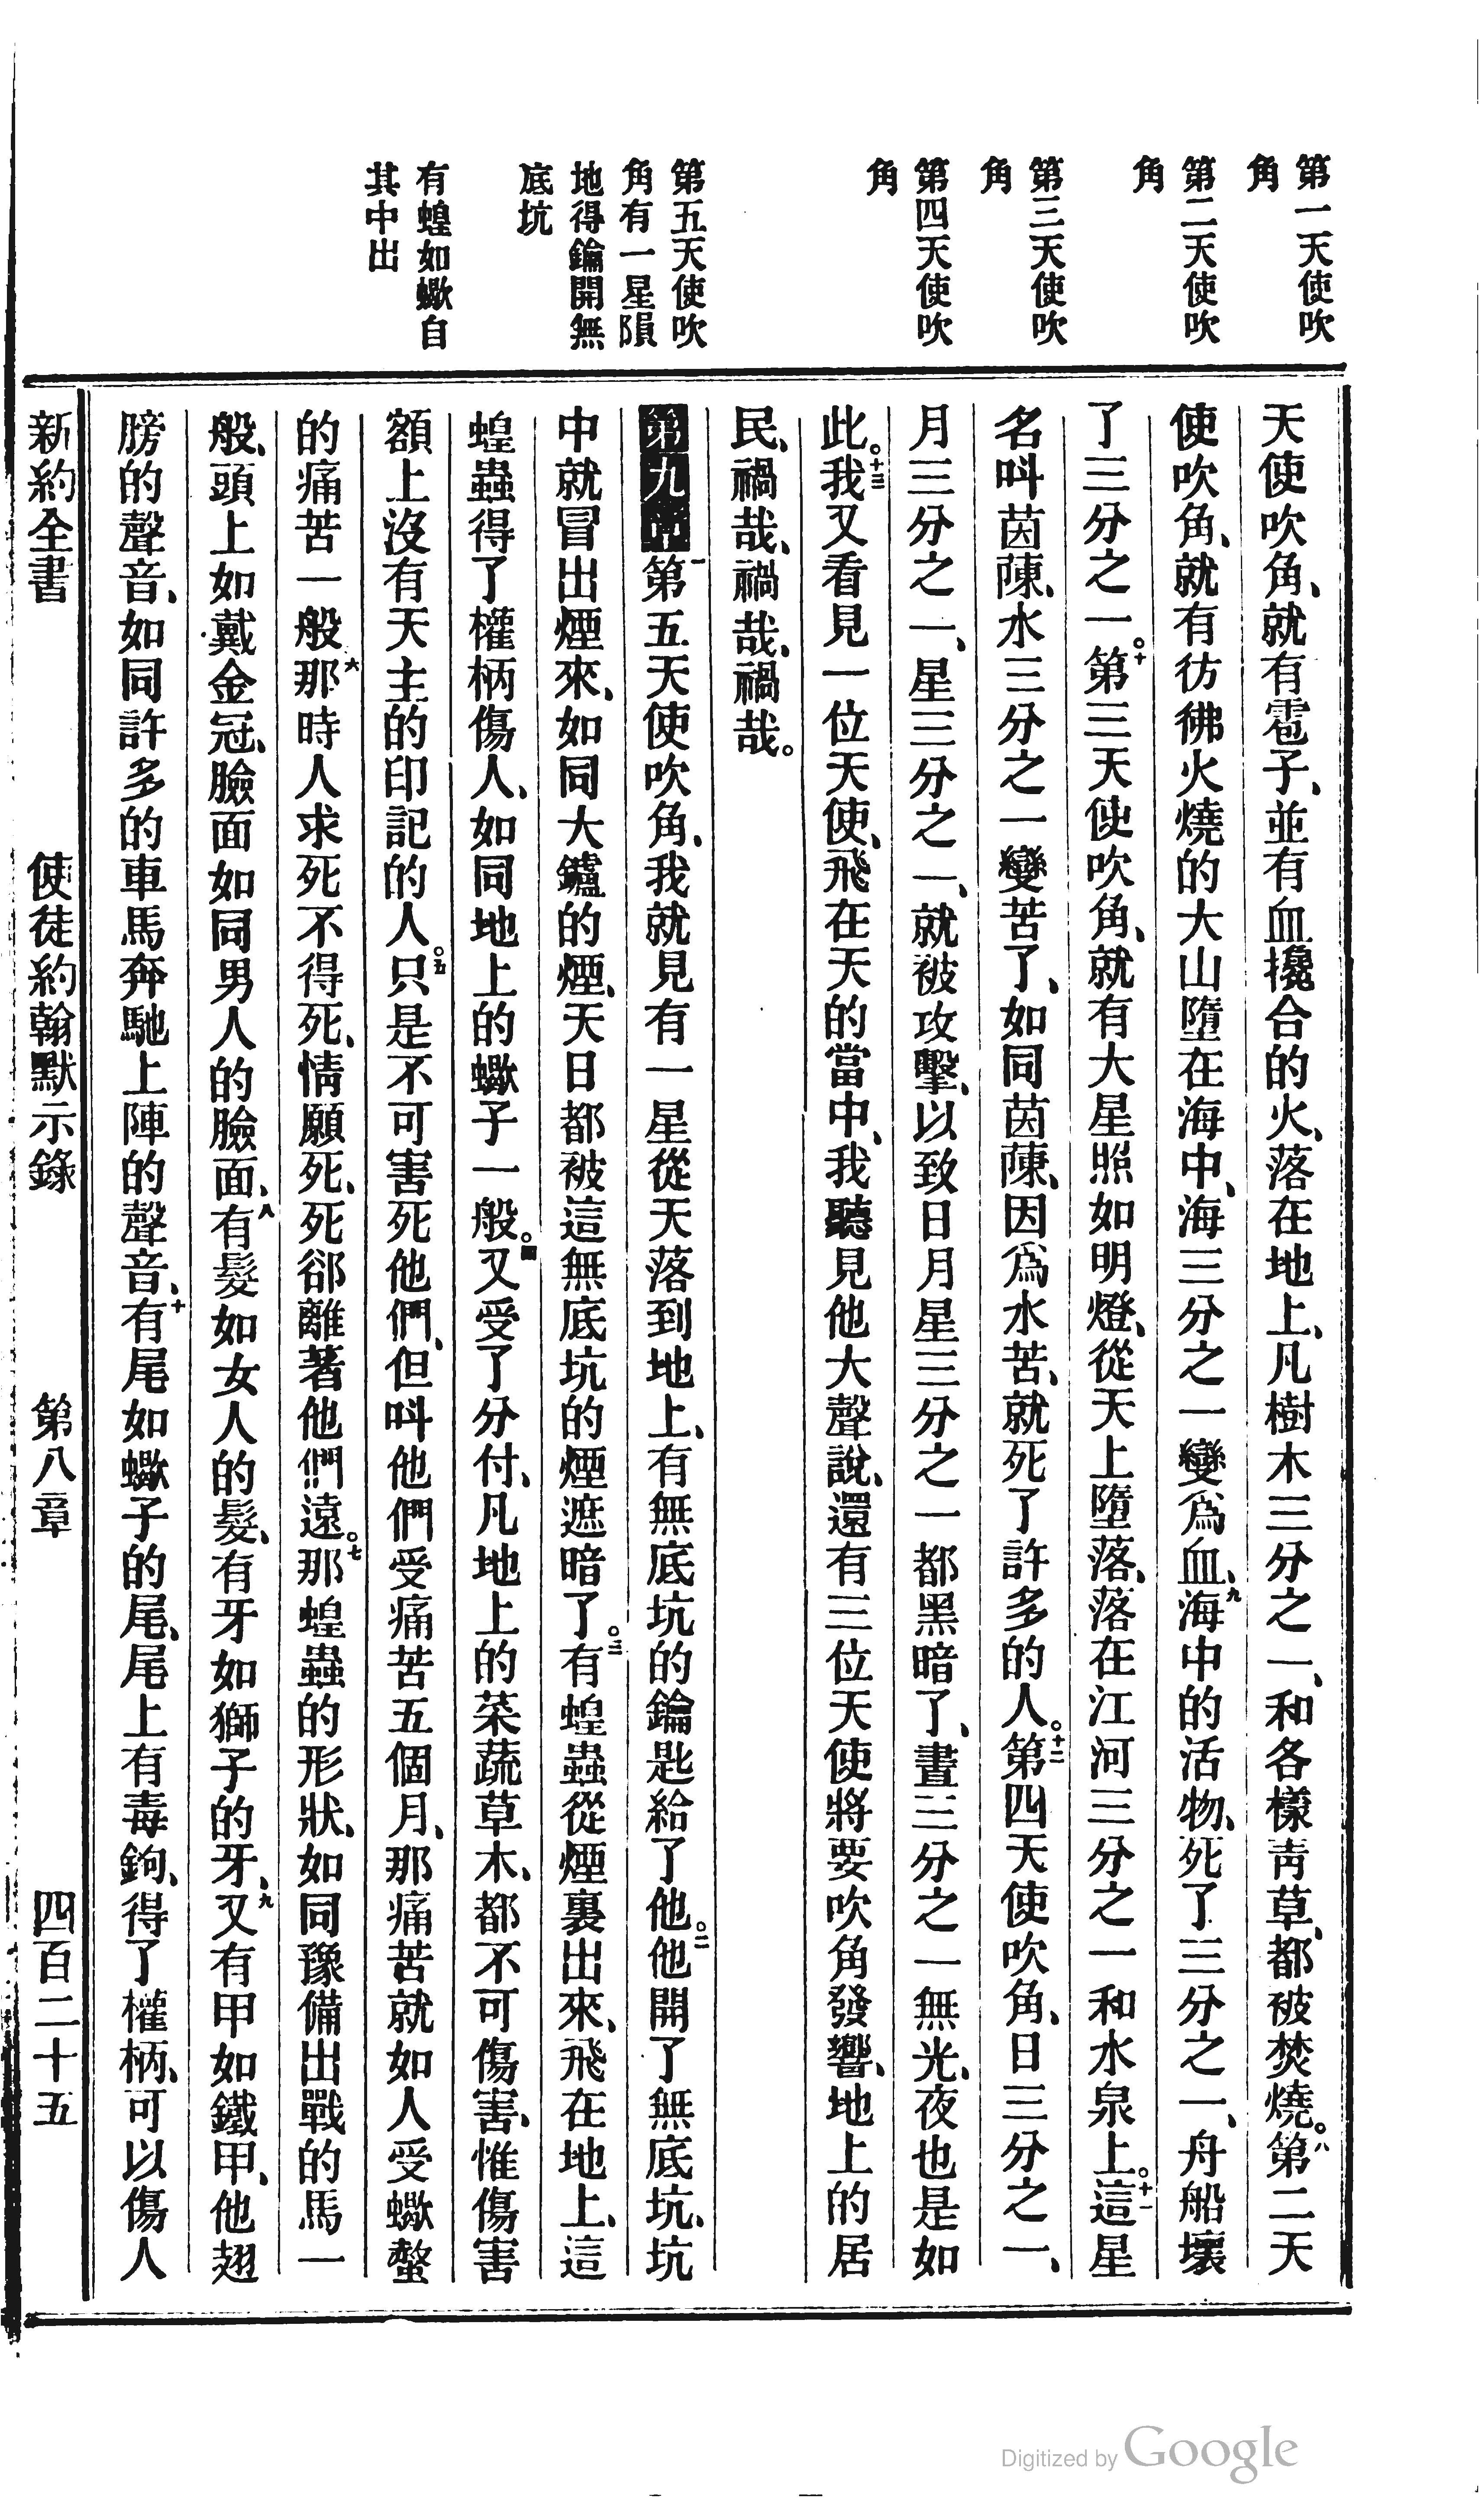 第一天使吹
角
第二天使吹
角
第三天使吹
角
第四天使吹
角
第五天使吹
角有一星隕
地得鑰開無
底坑
有蝗如蠍自
其中出
天使吹角、就有雹子、並有血攙合的火、落在地上、凡樹木三分之一、和各樣靑草、都被焚燒。八第二天
使吹角、就有彷彿火燒的大山墮在海中、海三分之一變爲血、九海中的活物、死了三分之一、舟船壞
了三分之一。十第三天使吹角、就有大星照如明燈、從天上墮落、落在江河三分之一和水泉上。十一這星
名呌茵蔯、水三分之一變苦了、如同茵蔯、因爲水苦、就死了許多的人。十二第四天使吹角、日三分之一、
月三分之一、星三分之一、就被攻擊、以致日月星三分之一都黑暗了、晝三分之一無光、夜也是如
此。十三我又看見一位天使、飛在天的當中、我聽見他大聲說、還有三位天使將要吹角發響、地上的居
民、禍哉、禍哉、禍哉。
第九章一第五天使吹角、我就見有一星從天落到地上、有無底坑的鑰匙給了他。二他開了無底坑、坑
中就冒出煙來、如同大鑪的煙、天日都被這無底坑的煙遮暗了。三有蝗蟲從煙裏出來、飛在地上、這
蝗蟲得了權柄傷人、如同地上的蠍子一般。四又受了分付、凡地上的菜蔬草木、都不可傷害、惟傷害
額上沒有天主的印記的人。五只是不可害死他們、但呌他們受痛苦五個月、那痛苦就如人受蠍螫
的痛苦一般六那時人求死不得死、情願死、死卻離著他們遠。七那蝗蟲的形狀、如同豫備出戰的馬一
般、頭上如戴金冠、臉面如同男人的臉面、八有髮如女人的髮、有牙如獅子的牙、九又有甲如鐵甲、他翅
膀的聲音、如同許多的車馬奔馳上陣的聲音、十有尾如蠍子的尾、尾上有毒鉤、得了權柄、可以傷人
新約全書 使徒約翰默示錄 第八章 四百二十五
Digitized by Google